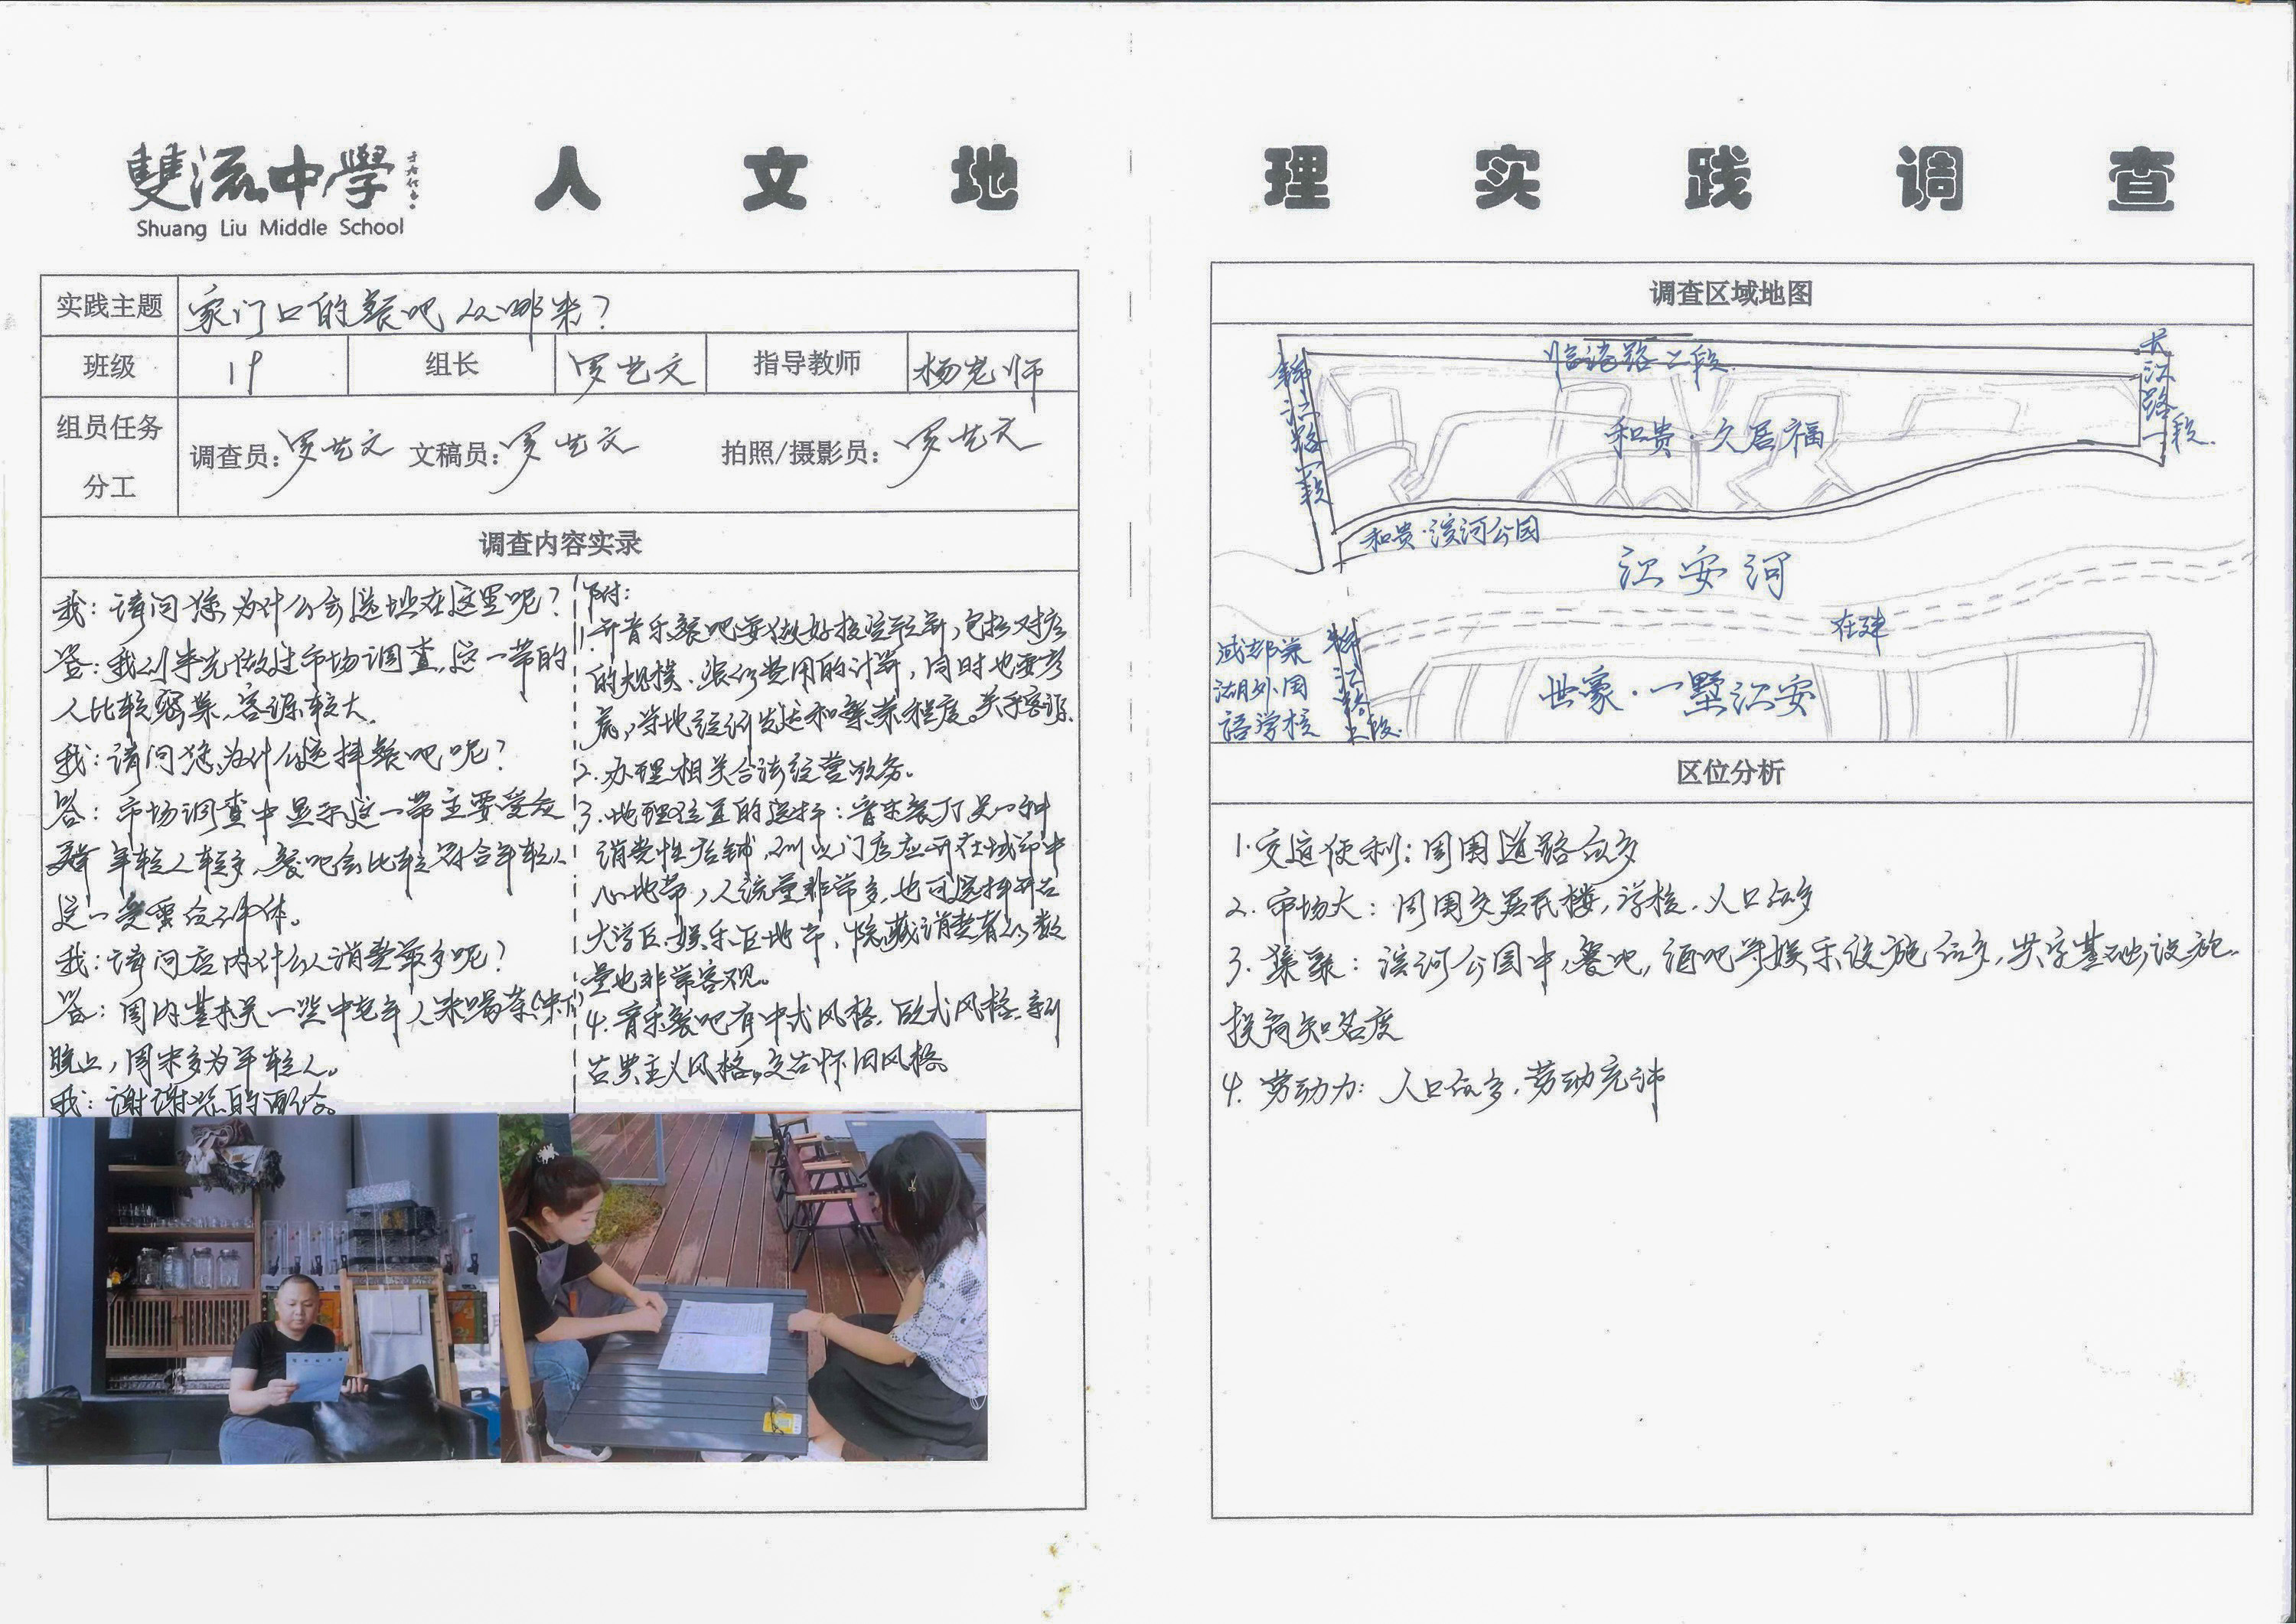 雙流中學
Shuang Liu Middle School
人文地理实践调查
实践主题 家门口的餐吧从哪来？
班级 19 组长 罗艺文 指导教师 杨老师
组员任务分工
调查员：罗艺文 文稿员：罗艺文 拍照/摄影员：罗艺文
调查内容实录
我：请问您为什么会选址在这里呢？
答：我们率先做过市场调查，这一带的
人比较密集，客源较大。
我：请问您为什么选择餐吧呢？
答：市场调查中显示这一带主要受众
年轻人较多，餐吧会比较符合年轻人
这一受众群体。
我：请问店内什么人消费最多呢？
答：周内基本是一些中老年人来喝茶
晚上，周末多为年轻人。
我：谢谢您的配合。
附：
1.开音乐餐吧要做好投资预断，包括对店
的规模、装修费用的计算，同时也要考
虑，当地经济发达和繁荣程度。关乎客源。
2.办理相关合法经营业务。
3.地理位置的选择：音乐餐厅是一种
消费性店铺，所以门店应开在城市中
心地带，人流量非常多，也可选择开在
大学区、娱乐区地带，隐藏消费者的数
量也非常客观。
4.音乐餐吧有中式风格、欧式风格、新
古典主义风格、复古怀旧风格。
调查区域地图
临港路二段
锦江路一段
长江路一段
和贵·久居福
和贵·滨河公园
江安河
在建
成都棠湖外国语学校
锦江路二段
世豪·一墅江安
区位分析
1.交通便利：周围道路众多
2.市场大：周围交居民楼，学校，人口众多
3.集聚：滨河公园中餐吧，酒吧等娱乐设施众多，共享基础设施。
提高知名度
4.劳动力：人口众多，劳动充沛